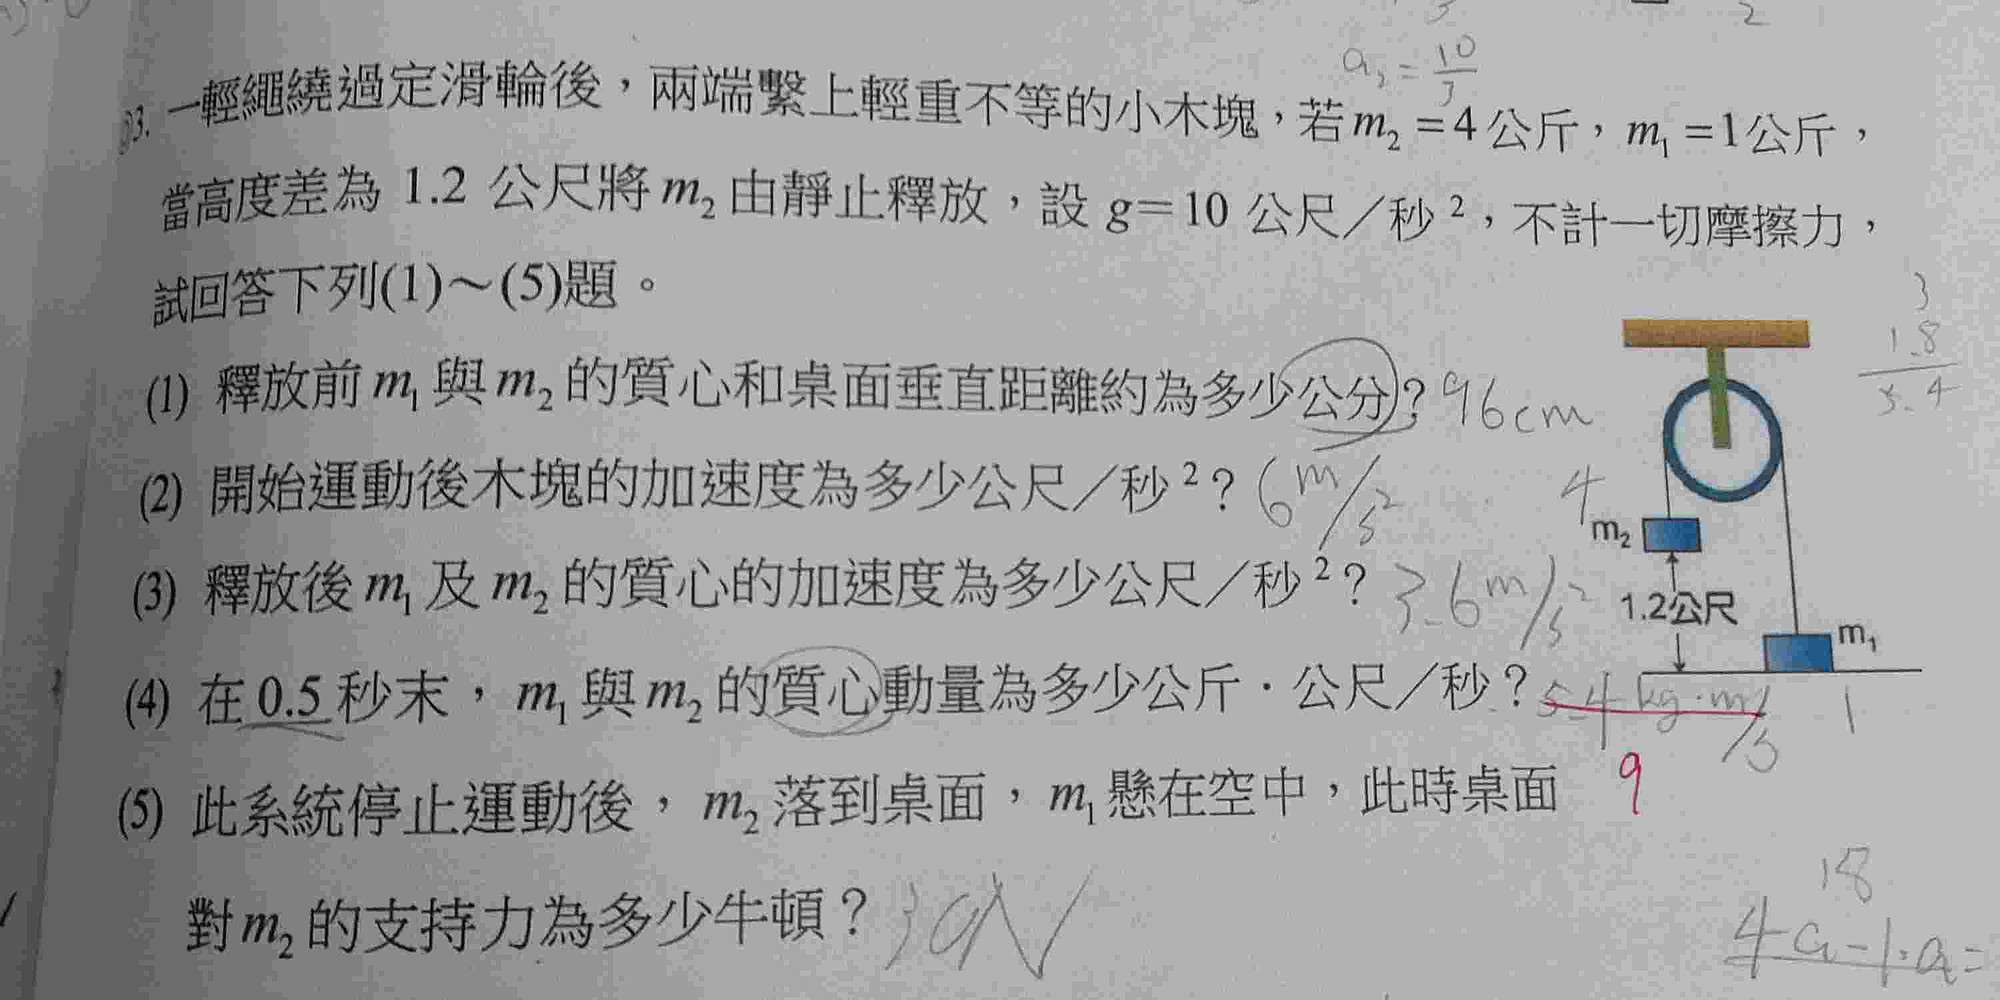 2
a₂ = 10/3
03. 一輕繩繞過定滑輪後，兩端繫上輕重不等的小木塊，若 m₂ =4公斤，m₁ =1公斤，
當高度差為 1.2 公尺將 m₂ 由靜止釋放，設 g=10 公尺／秒²，不計一切摩擦力，
試回答下列(1)～(5)題。
3
1.8
5.4
(1) 釋放前 m₁ 與 m₂ 的質心和桌面垂直距離約為多少公分？96cm
(2) 開始運動後木塊的加速度為多少公尺／秒²？6 m/s²
4
m₂
(3) 釋放後 m₁ 及 m₂ 的質心的加速度為多少公尺／秒²？3.6 m/s²
1.2公尺
m₁
(4) 在 0.5 秒末，m₁ 與 m₂ 的質心動量為多少公斤．公尺／秒？5.4 kg·m/s
1
9
(5) 此系統停止運動後，m₂ 落到桌面，m₁ 懸在空中，此時桌面
對 m₂ 的支持力為多少牛頓？30N
18
4a-1·a=